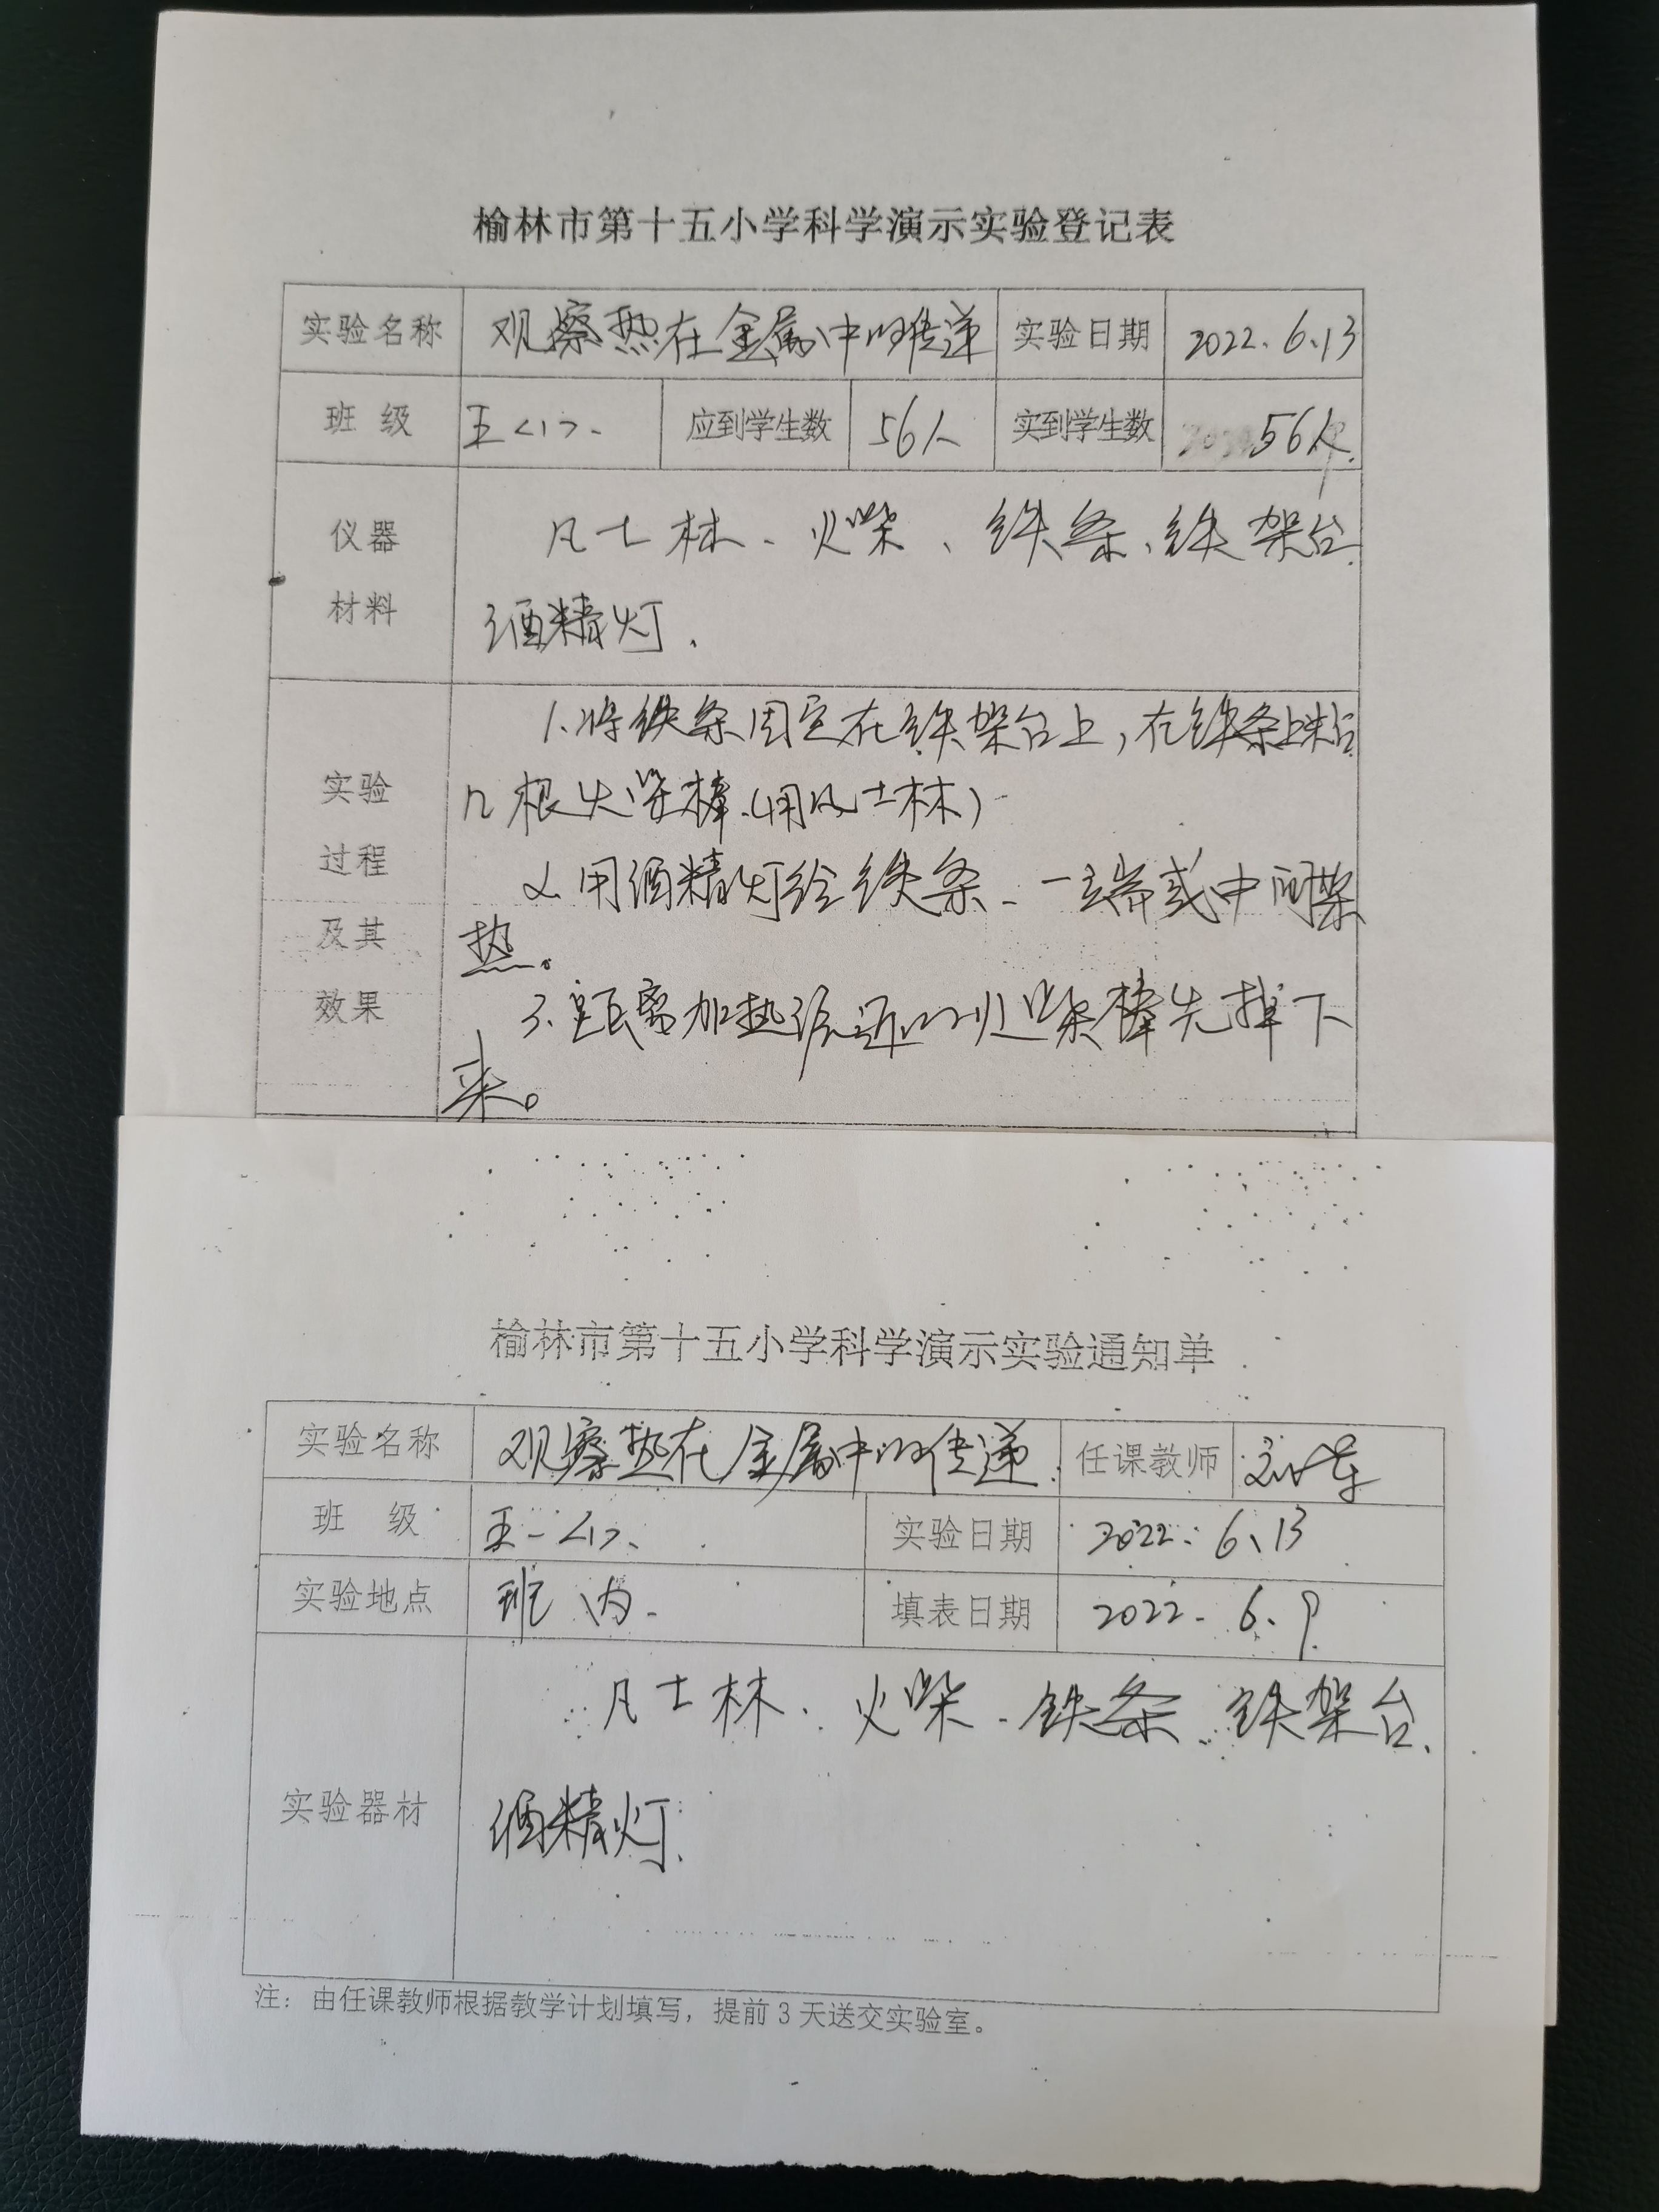 榆林市第十五小学科学演示实验登记表
实验名称 观察热在金属中的传递 实验日期 2022.6.13
班 级 五<1>. 应到学生数 56人 实到学生数 56人.
仪器 凡士林、火柴、铁条、铁架台.
材料 酒精灯.
1.将铁条固定在铁架台上,在铁条上粘
实验 几根火柴棒.(用凡士林)
过程 2.用酒精灯给铁条一端或中间
及其 热。
效果 3.距离加热源近的火柴棒先掉下
来。
榆林市第十五小学科学演示实验通知单
实验名称 观察热在金属中的传递. 任课教师
班 级 五-<1>. 实验日期 2022.6.13
实验地点 班内. 填表日期 2022.6.9.
凡士林、火柴、铁条、铁架台、
实验器材 酒精灯.
注:由任课教师根据教学计划填写,提前3天送交实验室。